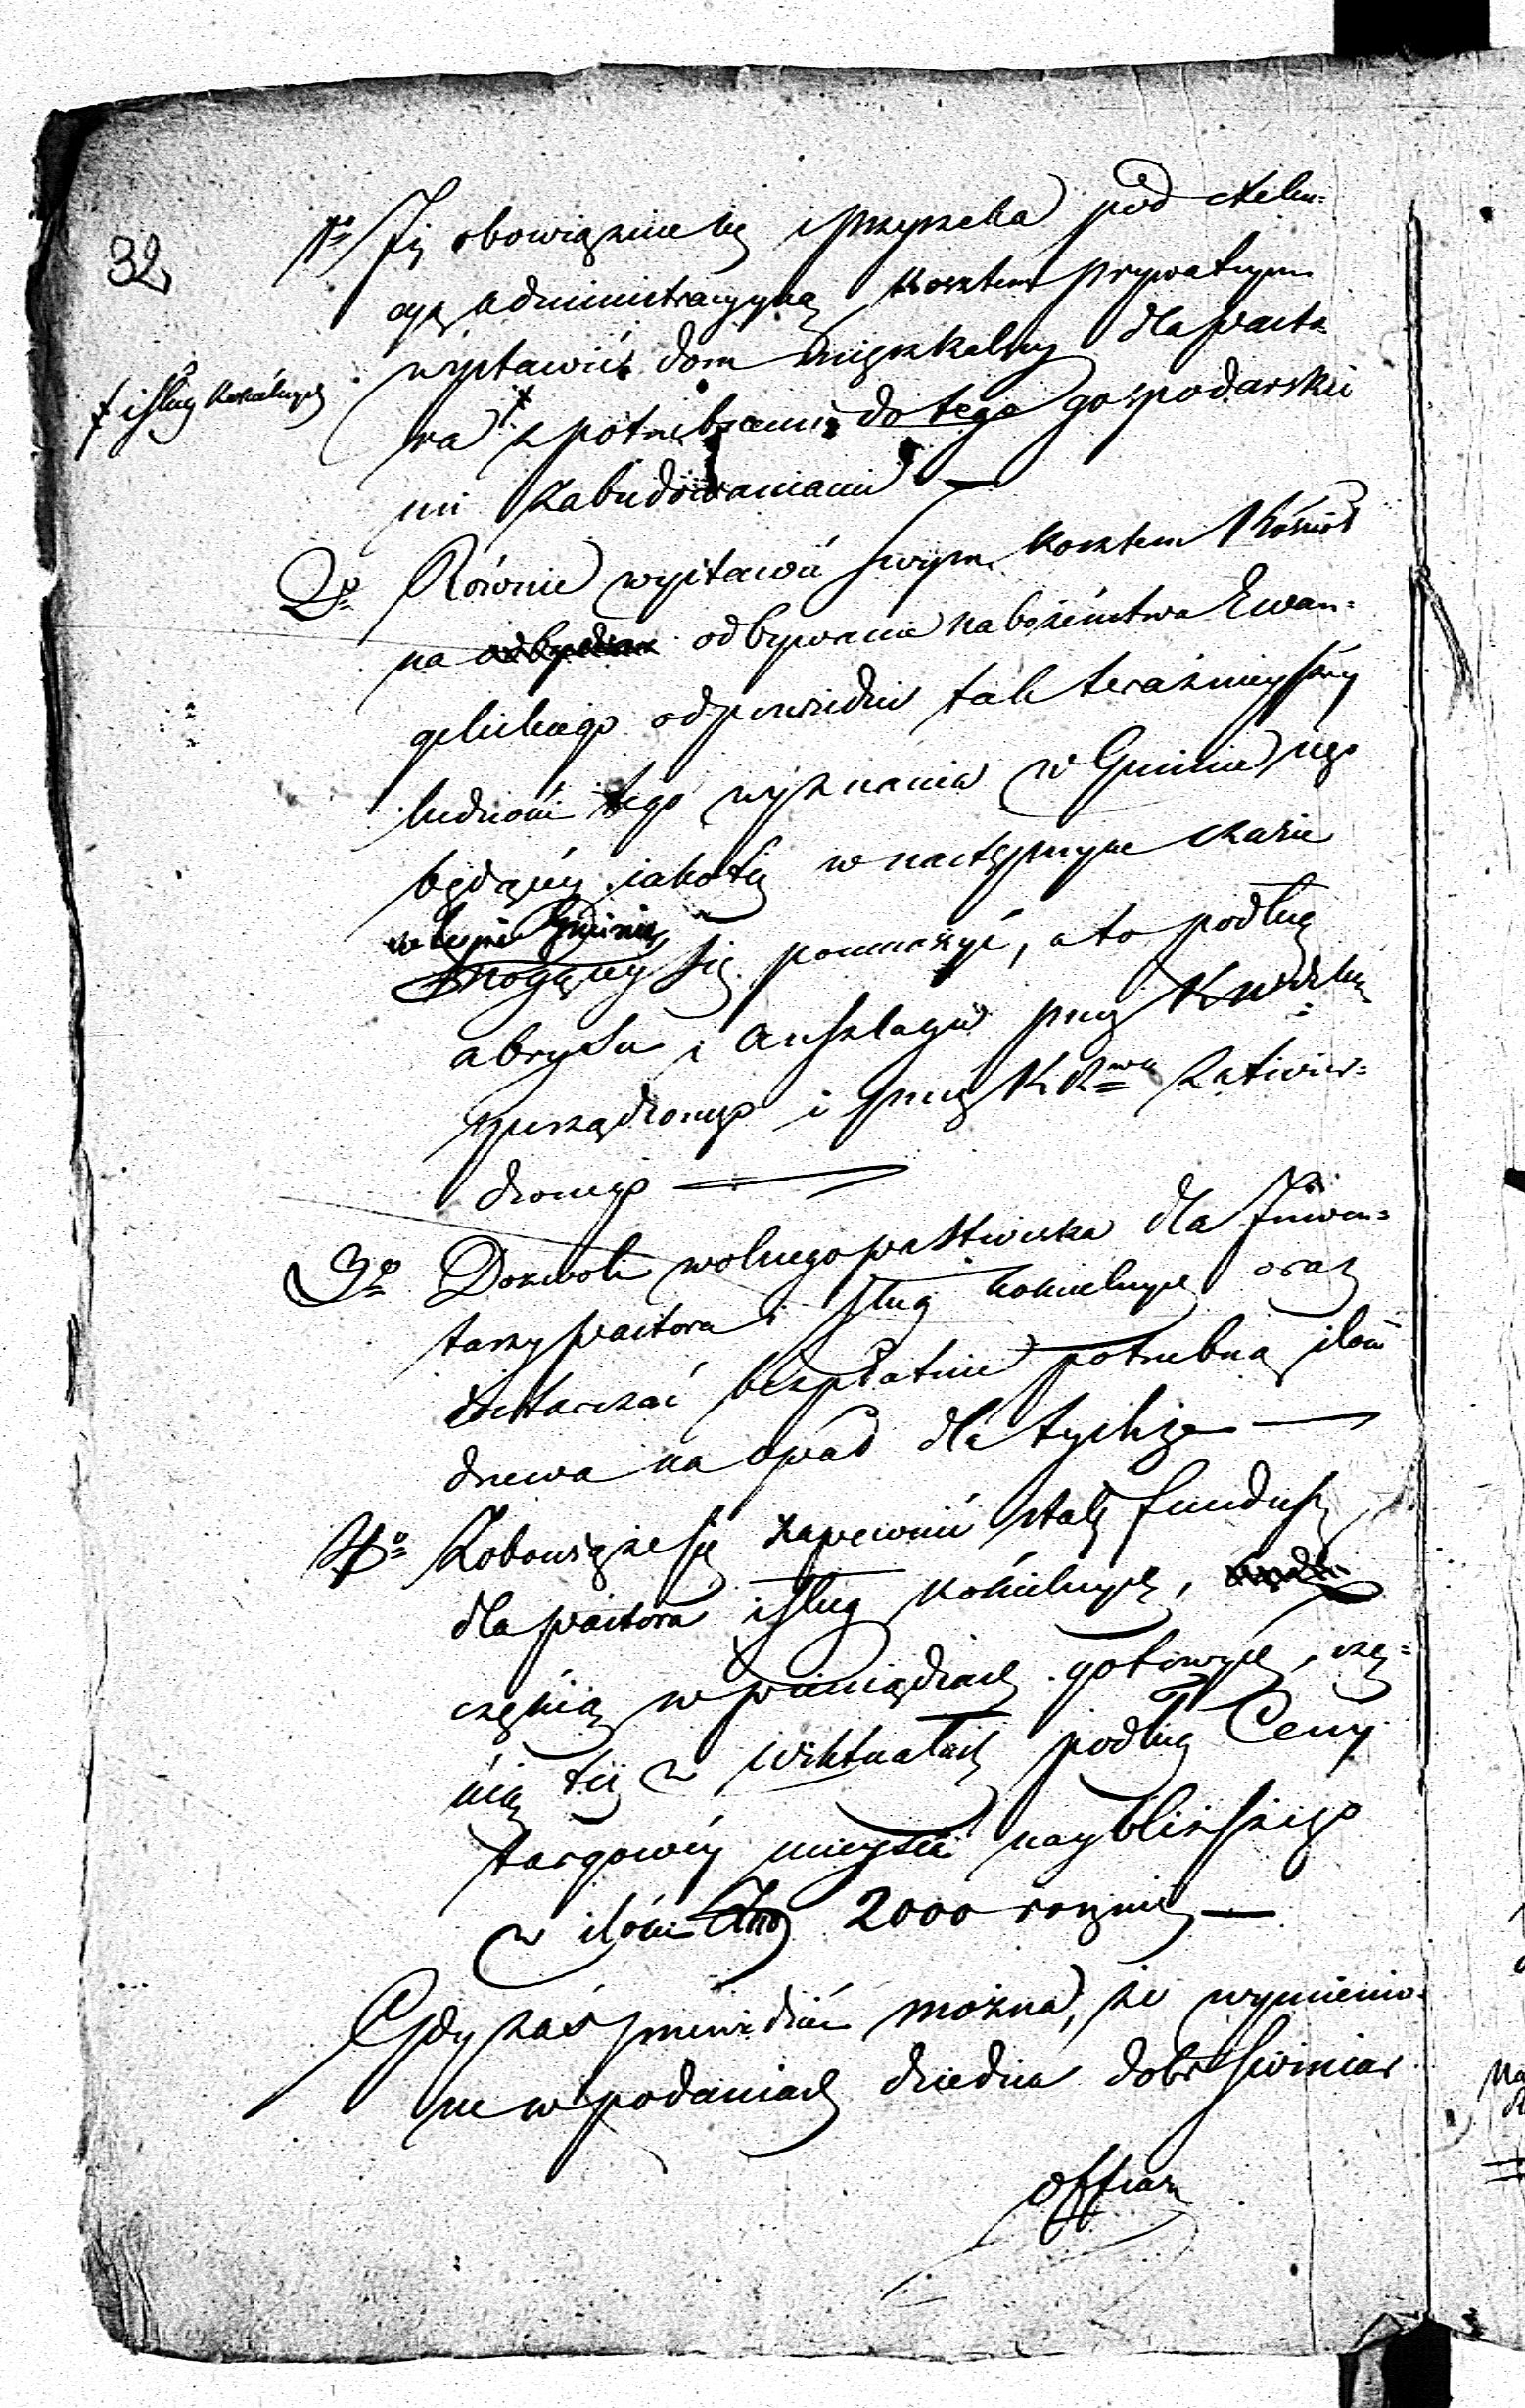 32
1o Iż obowiązuie się i przyrzeka pod exeku=
cyą administracyyną kosztem prywatnym
wystawić dom mieszkalny dla pasto
ra × z potrzebnemi do tego gospodarski
mi zabudowaniami —
× i sług kościelnych
2o Równie wystawić swym kosztem Kościoł
na odbywanie nabożeństwa Ewan=
gelickiego odpowiedni tak teraźnieyszey
ludności tego wyznania w Gminie iego
będącey iakoteż w następnym czasie
w teyże Gminie
mogącey się pomnożyć, a to podług
abrysu i anszlagu przez
sporządzonego i przez K R zatwier=
dzonego —
3o Dozwoli wolnego pastwiska dla Inwen=
tarzy pastora i sług kościelnych oraz
dostarczać bezpłatnie potrzebną ilość
drzewa na opał dla tychże —
4o Zobowiąże się zapewnić stały fundusz
dla pastora i sług kościelnych,
częścią w pieniądzach gotowych, czę=
ścią też w wiktuałach podług Ceny
targowey mieysca naybliższego
w ilości 2000 rocznie —
Gdy zaś przewidzieć można, że wymienio=
ne w podaniach dziedzica dobr Swiniar
offiary